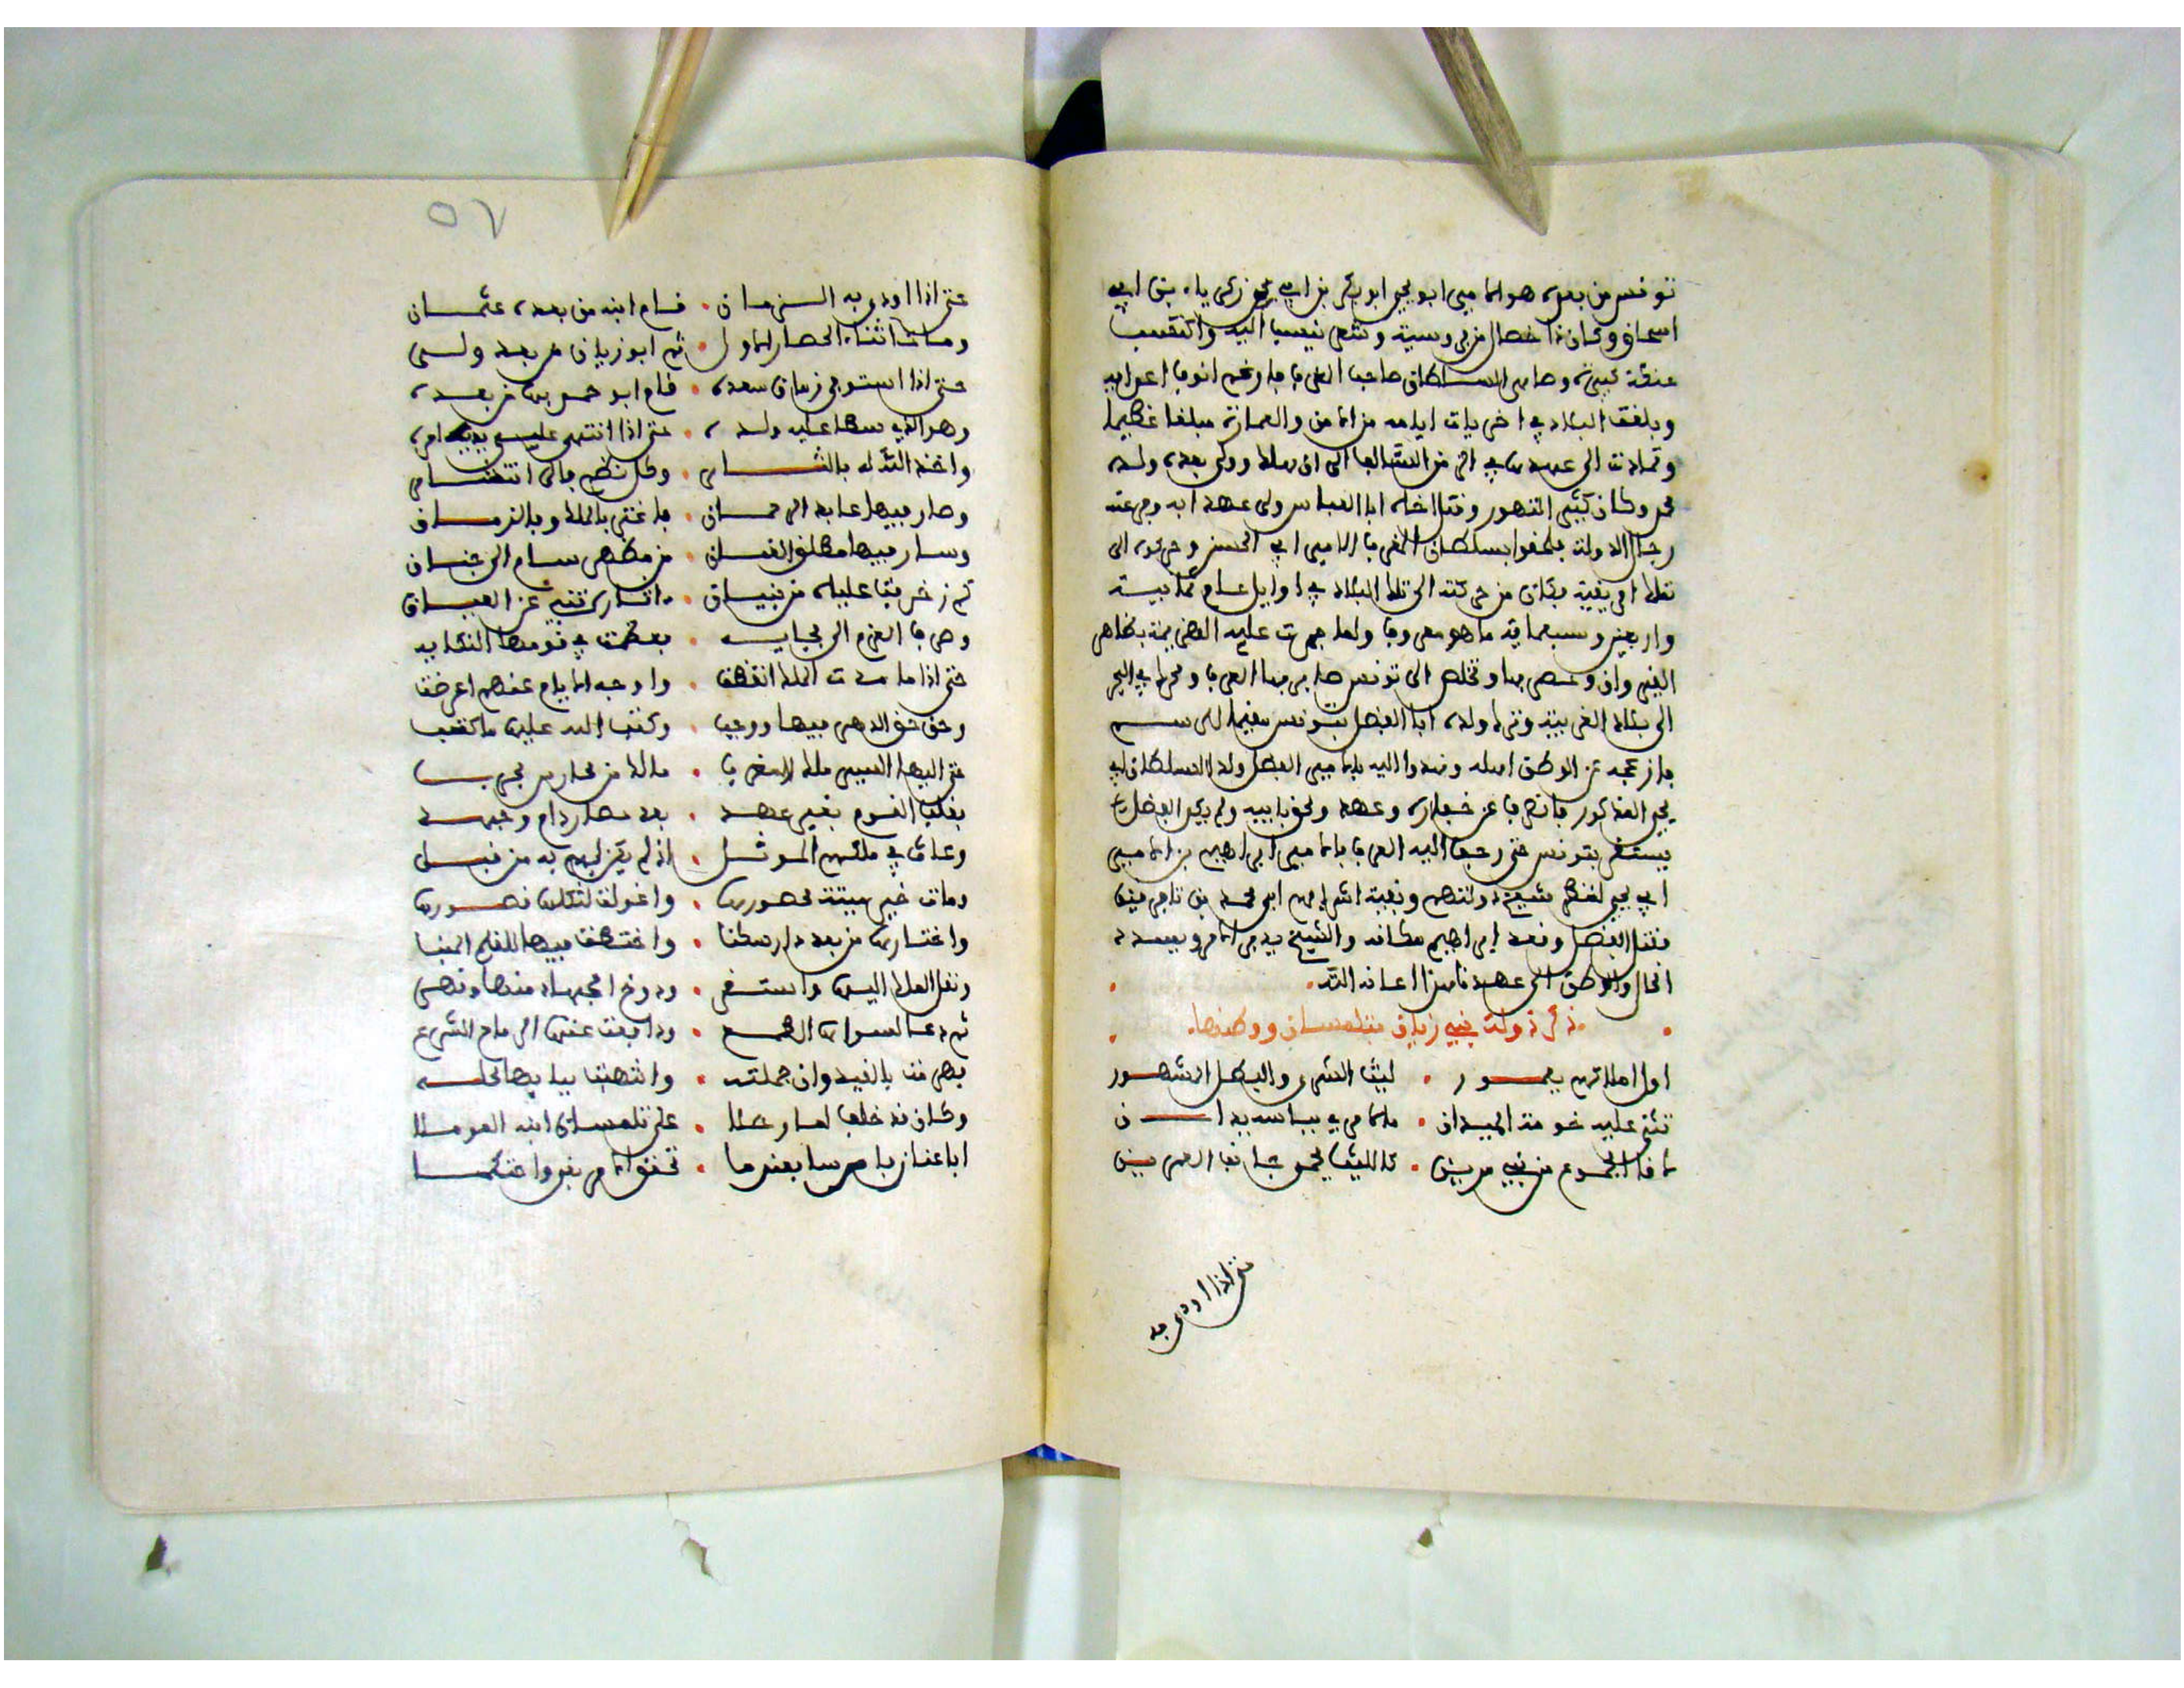 تونس من بعده هو الامير ابو يحيى ابو بكر بن ابي زكرياء بن ابي
اسحاق وكان ذا خصال مرضية وشعر ينسب اليه والتفت
عليه وصاهر السلطان صاحب المغرب فارغم انوف اعرابه
وبلغت البلاد في اخريات ايامه من الامن والعمارة مبلغا عظيما
وتمادت الى عهده في اخر من الى ان هلك وولى بعده ولده
عمر وكان كثير التهور وقتل اخاه ابا العباس ولى عهد ابيه وفر عنه
رجال الدولة فلحقوا بسلطان المغرب الامير ابي الحسن وحركوه الى
تملك افريقية فكان من حركته الى تلك البلاد في اوايل عام ثمانية
واربعين وسبعماية ما هو معروف ولما جرت عليه الهزيمة بظاهر
القيروان وحصر بها وتخلص الى تونس حاصر بها العرب وتحرك في البحر
الى بلاد الغرب وترك ولده ابا الفضل بتونس مقيما لرسم
فازعجه عن الوطن اهله وقدموا اليه الامير الفضل ولد السلطان ابي
يحيى المذكور فانصرف عن خيار وعهد ولحق بابيه ولم يكن الفضل
يستقر بتونس حتى رجف اليه العرب بالامير ابراهيم بن الامير
ابي يحيى لنظر شيخ دولتهم وبقية اشرافهم ابي محمد بن تافراجين
فقتل الفضل وقعد ابراهيم مكانه والشيخ يدبر الامر وبيده
الحال والوطن الى عهد نا هذا اعانه الله
ذكر دولة بني زيان بتلمسان ووطنها
اول املاكهم يغمور • ليث الشرى والبطل المشهور
تثنى عليه حومة الميدان • ما مر في بباسه يدان
لاقا الجموع من بني مرين • كالليث يحمو جانب العرين
حتى اذا اودى به
٥٧
حتى اذا اودى به الزمان • قام ابنه من بعده عثمان
ومات اثناء الحصار الاول • ثم ابو زيان من بعد ولى
حتى اذا استوفى زمان سعده • قام ابو حمو بها من بعده
وهو الذي سطا عليه ولده • حتى اذا انتهى عليه امره
واخذ الله بالثار • وكل نظم فالى انتثار
وصار فيها عابد الرحمان • فاغتر بالملك وبالزمان
وسار فيها مطلق العنان • من مظهر سام الى جنان
كم زخرفت علياه من بنيان • اثاره تنبي عن العيان
وصرف العزم الى بجايه • فعظمت في قومها النكايه
حتى اذا ما مدة الملك انقضت • واوجه الايام عنهم اعرضت
وحق حق الدهر فيها ووجب • وكتب الله عليها ما كتب
حث اليها السير ملك المغرب • مالك من محارب مجرب
فغلب القوم بغير عهد • بعد حصار دام وجهد
وعاق في ملكهم الموثل • اذ لم يحز لهم به من قبل
ومات خير ميتة محصورها • واغولت لثكلها قصورها
واختارها من بعد دار سكنا • واختطفت فيها للفلح المنا
ونقل الملك اليها واستقر • ودوخ الجهاد منها ونصر
ثم دعا لسواها الطمع • ودافعت عنها الرماح الشرع
فصرفت بالقيروان جملته • وانتهبت بيابها محلته
وكان قد خلف لما رحلا • على تلمسان ابنه المومللا
ابا عنان باحرسا بعدما • تحقق الامر بغير واحتكما